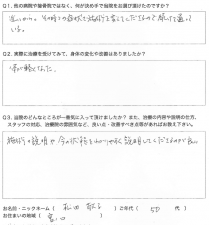 Q1. 他の病院や整骨院ではなく、何が決め手で当院をお選び頂けたのですか？
近いから。その時々の症状で施術を変えてくださるので楽しくて通って
いる。
Q2. 実際に治療を受けてみて、身体の変化や改善はありましたか？
体が軽くなった。
Q3. 当院のどんなところが一番気に入って頂けましたか？また、治療の内容や説明の仕方、
スタッフの対応、治療院の雰囲気など、良い点・改善すべき点等があればお教え下さい。
施術の説明や今の状態をわかりやすく説明してくださるのが良い
お名前・ニックネーム（ ）ご年代（ 50 代 ）
お住まいの地域（ ）